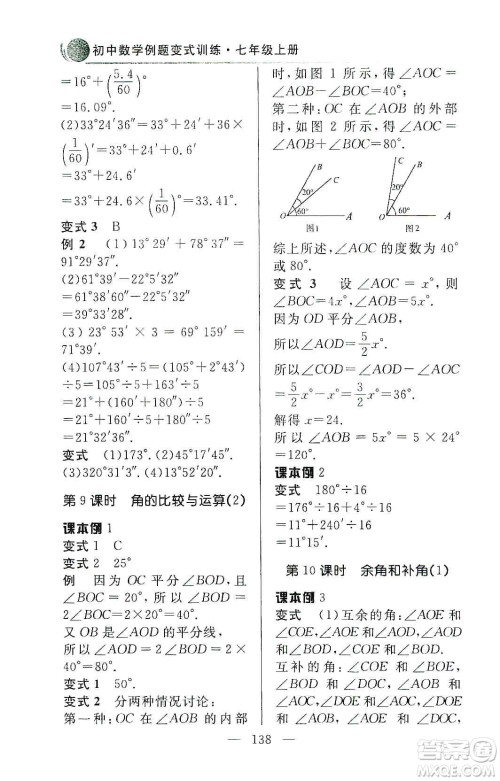 初中数学例题变式训练·七年级上册
=16°+(5.4/60)°
=16.09°.
(2)33°24′36″=33°+24′+36×
(1/60)′=33°+24′+0.6′
=33°+24.6′
=33°+24.6×(1/60)°=33.41°.
变式 3 B
例 2 (1)13°29′+78°37′=
91°29′37″.
(2)61°39′-22°5′32″=
39°33′28″.
(3)23°53′×3=69°+159′=
71°39′.
(4)107°43′÷5=(105°+2°43′)
÷5=21°+163′÷5
=21°+(160′+3′)÷5
=21°+32′+180″÷5
=21°32′36″.
变式 (1)73°49′5″. (2)27°44′55″.
(3)320°31′3″. (4)15°32′15″.
第 9 课时 角的比较与运算(2)
课本例 1
变式 1 C
变式 2 25°
例 因为 OC 平分∠BOD,
所以∠BOD=2∠COD=
∠BOC=2×20°=40°.
又 OB 是∠AOD 的平分线,
所以∠AOD=2∠BOD=
2×40°=80°.
变式 1 50°.
变式 2 分两种情况讨论:
第一种:OC 在∠AOB 的内部
时,如图 1 所示,得∠AOC=
∠AOB-∠BOC=40°;
第二种:OC 在∠AOB 的外部
时,如图 2 所示,得∠AOC=
∠AOB+∠BOC=80°.
20°
60°
O
A
图1
20°
60°
O
A
图2
综上所述,∠AOC 的度数为 40°
或 80°.
变式 3 设∠AOC=x°,则
∠BOC=4x°,∠AOB=5x°.
因为 OD 平分∠AOB,
所以∠AOD=5/2x°.
所以∠COD=∠AOD-∠AOC=
5/2x°-x°=3/2x°=36°.
解得 x=24.
所以∠AOB=5x°=5×24°
=120°.
课本例 2
变式 180°÷16
=176°÷16+4°÷16
=11°+240′÷16
=11°15′.
第 10 课时 余角和补角(1)
课本例 3
变式 (1)互余的角:∠AOE 和
∠COE,∠AOE 和∠BOD,
∠COD 和∠COE,∠COD 和
∠BOD.
互补的角:∠AOE 和∠BOE,
∠AOC 和∠BOC,∠AOD 和
∠BOD,∠DOC 和∠AOD,
138